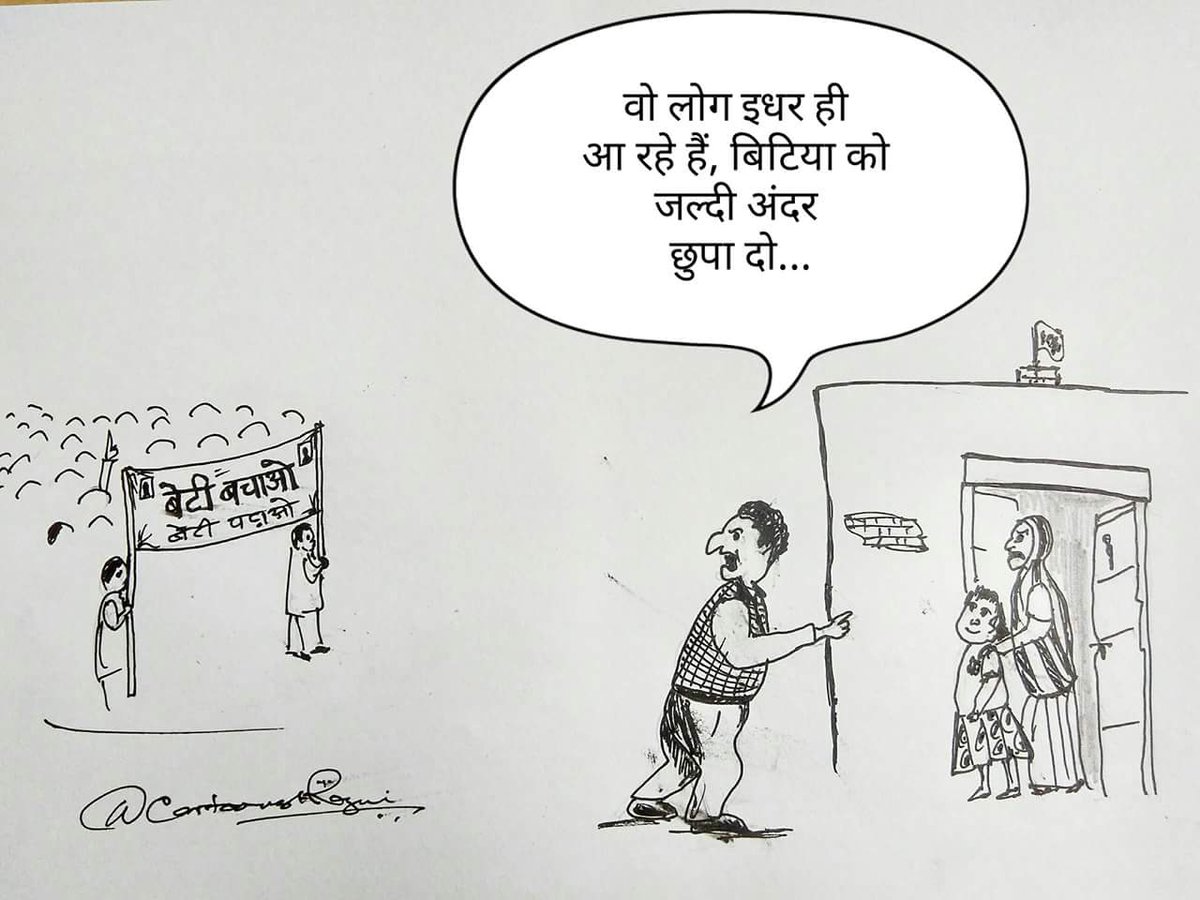 वो लोग इधर ही
आ रहे हैं, बिटिया को
जल्दी अंदर
छुपा दो...
बेटी बचाओ
बेटी पढ़ाओ